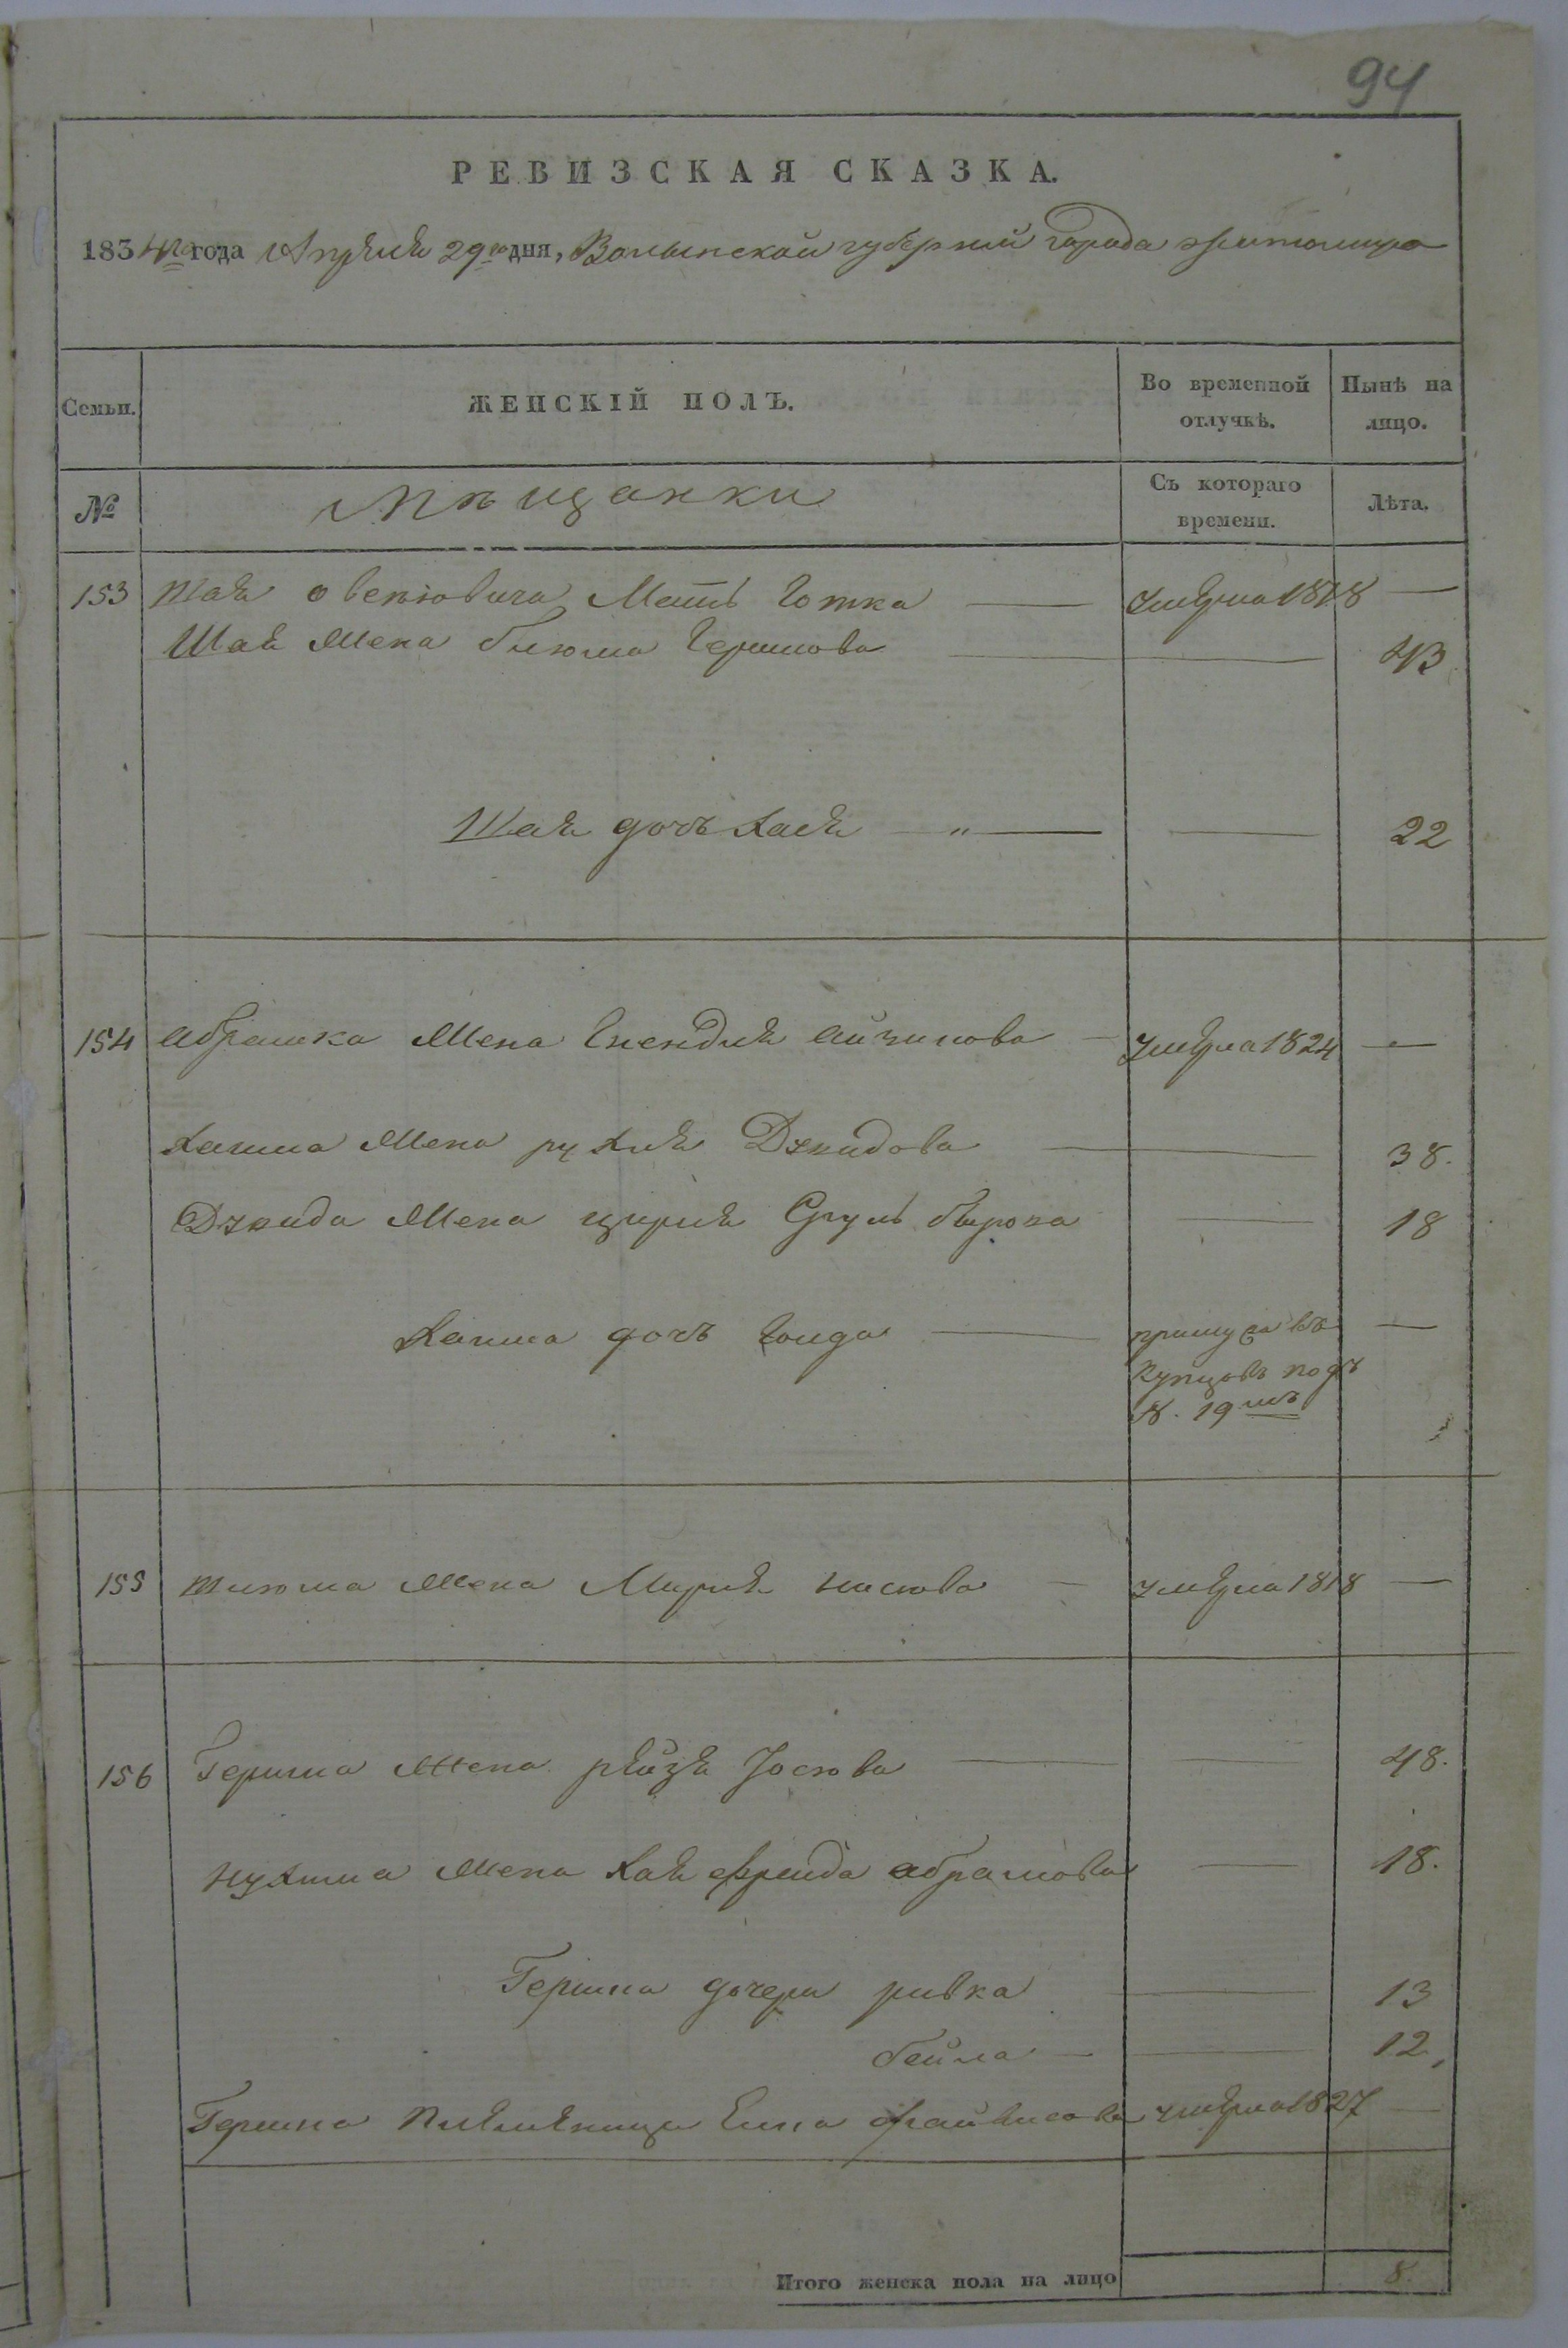 94
РЕВИЗСКАЯ СКАЗКА.
1834го года Апреля 29го дня, Волынской губернии города Житомира
Семьи. ЖЕНСКІЙ ПОЛЪ. Во временной отлучкѣ. Нынѣ на лицо.
№ Мѣщанки Съ котораго времени. Лѣта.
153 Шая Мать умерла 1818 —
Шая Жена Блюма Гершова — 43
Шая дочь Хая — " — 22
154 Абрамка Жена умерла 1824 —
Хаима Жена рухля Дувидова — 38.
Дувида Жена цирля Сруль берова — 18
Хаима дочь Голда — въ —
Купцовъ подъ
№. 19мъ
155 Шлюма Жена Мирля умерла 1818 —
156 Герша Жена рейзя Иосева — 48.
Нухима Жена Хая фрейда абрамова — 18.
Герша дочери ривка — 13
бейла — 12
Герша Племяница файвисова умерла 1827 —
Итого женска пола на лицо 8.